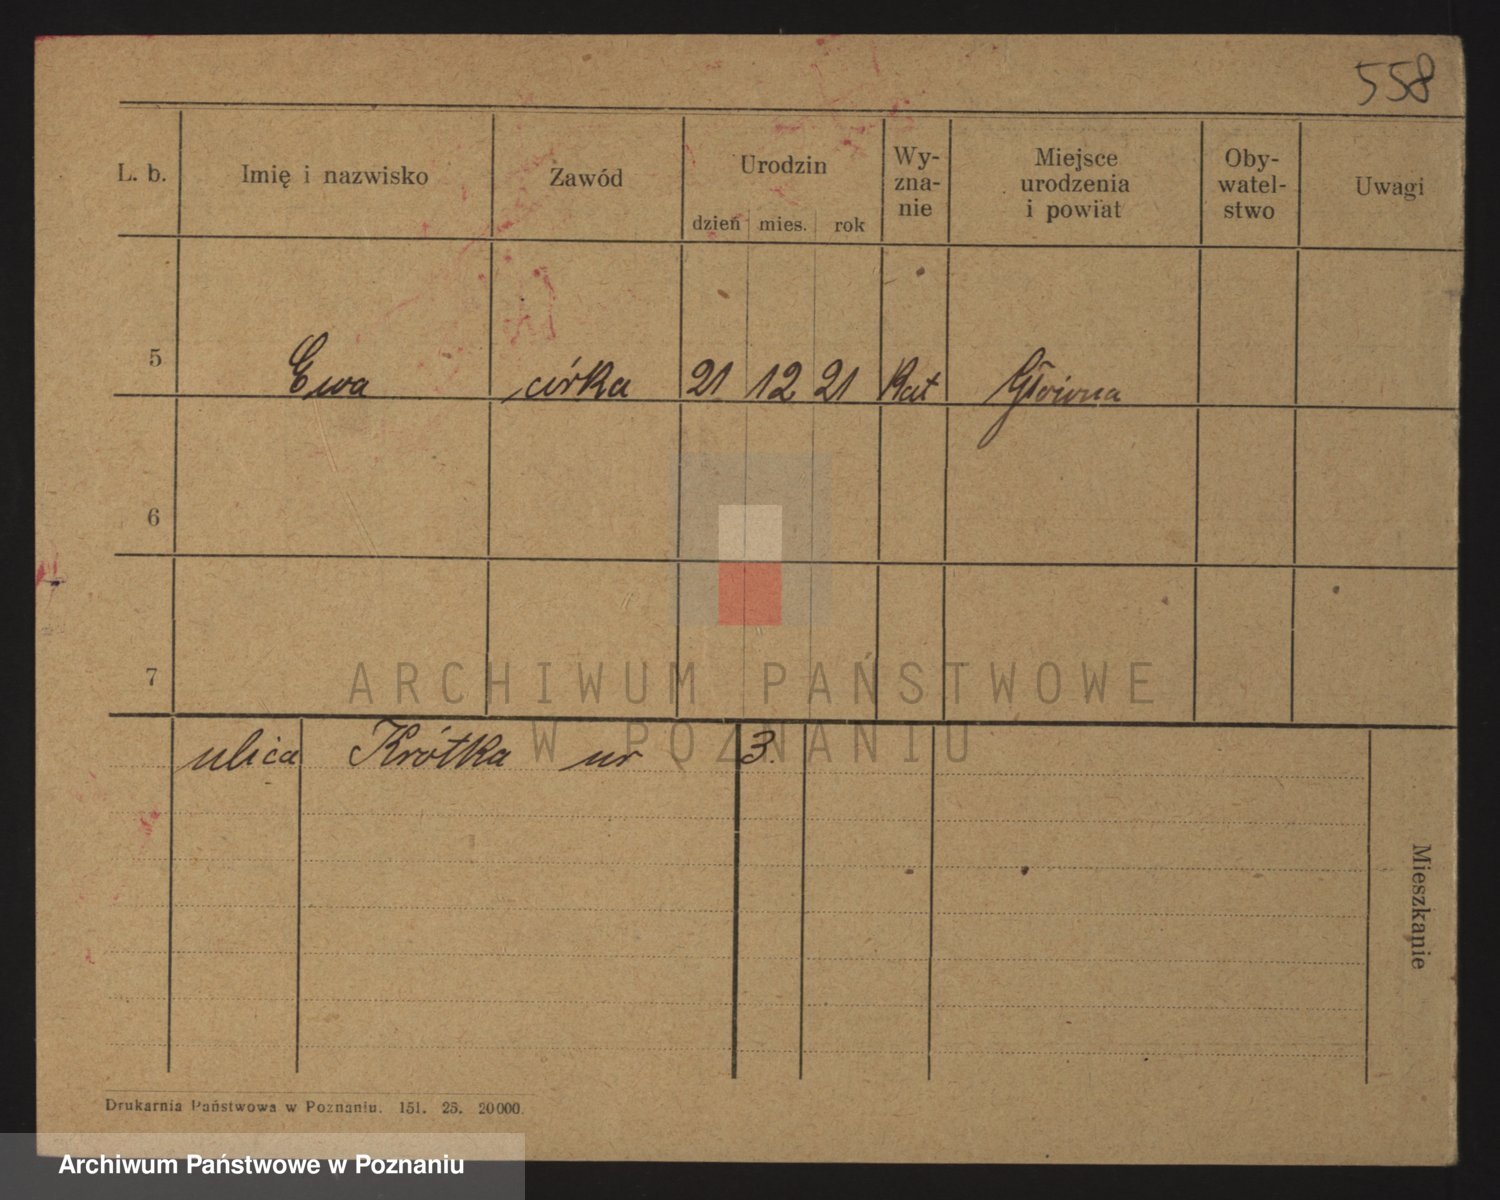 558
L. b. Imię i nazwisko Zawód Urodzin Wy-zna-nie Miejsce urodzenia i powiat Oby-watel-stwo Uwagi
dzień mies. rok
5 Ewa córka 21 12 21 Kat Główna
6
7
ulica Krótka nr 3.
Mieszkanie
Drukarnia Państwowa w Poznaniu. 151. 25. 20000.
ARCHIWUM PAŃSTWOWE
W POZNANIU
Archiwum Państwowe w Poznaniu